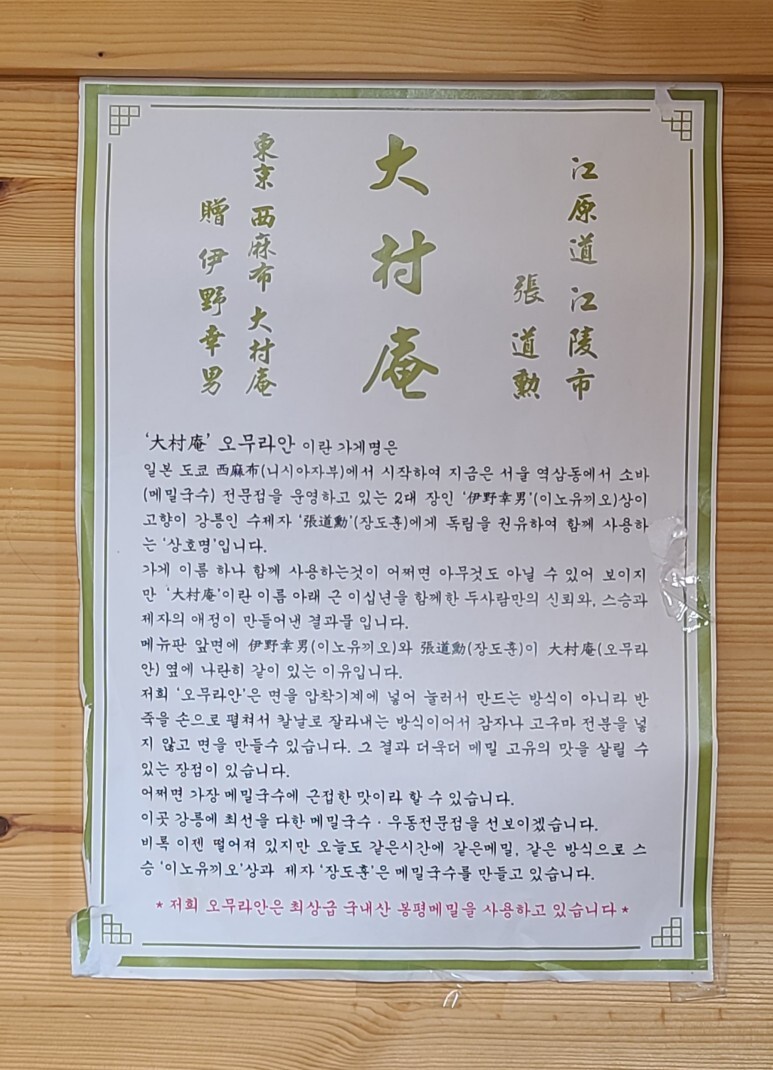 江原道 江陵市
張道勲
大村庵
東京 西麻布 大村庵
贈 伊野幸男
‘大村庵’ 오무라안 이란 가게명은
일본 도쿄 西麻布(니시아자부)에서 시작하여 지금은 서울 역삼동에서 소바
(메밀국수) 전문점을 운영하고 있는 2대 장인 ‘伊野幸男’(이노유끼오)상이
고향이 강릉인 수제자 ‘張道勳’(장도훈)에게 독립을 권유하여 함께 사용하
는 ‘상호명’입니다.
가게 이름 하나 함께 사용하는것이 어쩌면 아무것도 아닐 수 있어 보이지
만 ‘大村庵’이란 이름 아래 근 이십년을 함께한 두사람만의 신뢰와, 스승과
제자의 애정이 만들어낸 결과물 입니다.
메뉴판 앞면에 伊野幸男(이노유끼오)와 張道勳(장도훈)이 大村庵(오무라
안) 옆에 나란히 같이 있는 이유입니다.
저희 ‘오무라안’은 면을 압착기계에 넣어 눌러서 만드는 방식이 아니라 반
죽을 손으로 펼쳐서 칼날로 잘라내는 방식이어서 감자나 고구마 전분을 넣
지 않고 면을 만들수 있습니다. 그 결과 더욱더 메밀 고유의 맛을 살릴 수
있는 장점이 있습니다.
어쩌면 가장 메밀국수에 근접한 맛이라 할 수 있습니다.
이곳 강릉에 최선을 다한 메밀국수 · 우동전문점을 선보이겠습니다.
비록 이젠 떨어져 있지만 오늘도 같은시간에 같은메밀, 같은 방식으로 스
승 ‘이노유끼오’상과 제자 ‘장도훈’은 메밀국수를 만들고 있습니다.
* 저희 오무라안은 최상급 국내산 봉평메밀을 사용하고 있습니다 *